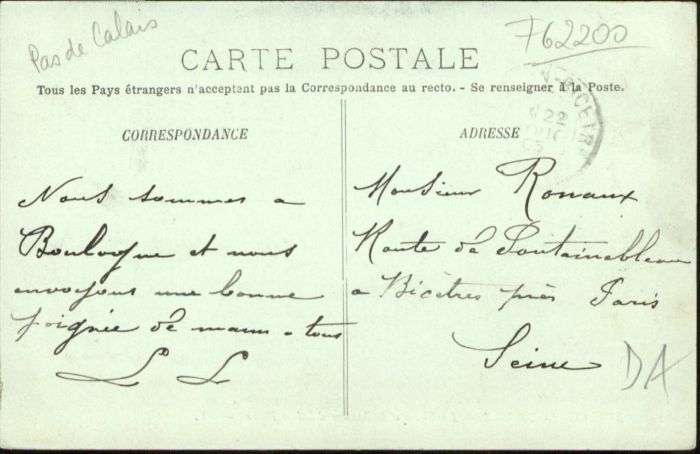 Pas de Calais
F62200
CARTE POSTALE
Tous les Pays étrangers n'acceptent pas la Correspondance au recto. - Se renseigner à la Poste.
CORRESPONDANCE
Nous sommes a
Boulogne et nous
envoyons une bonne
poignée de main a tous
L L
ADRESSE
22
Monsieur Ronaux
Route de Fontainebleau
a Bicètres près Paris
Seine
DA